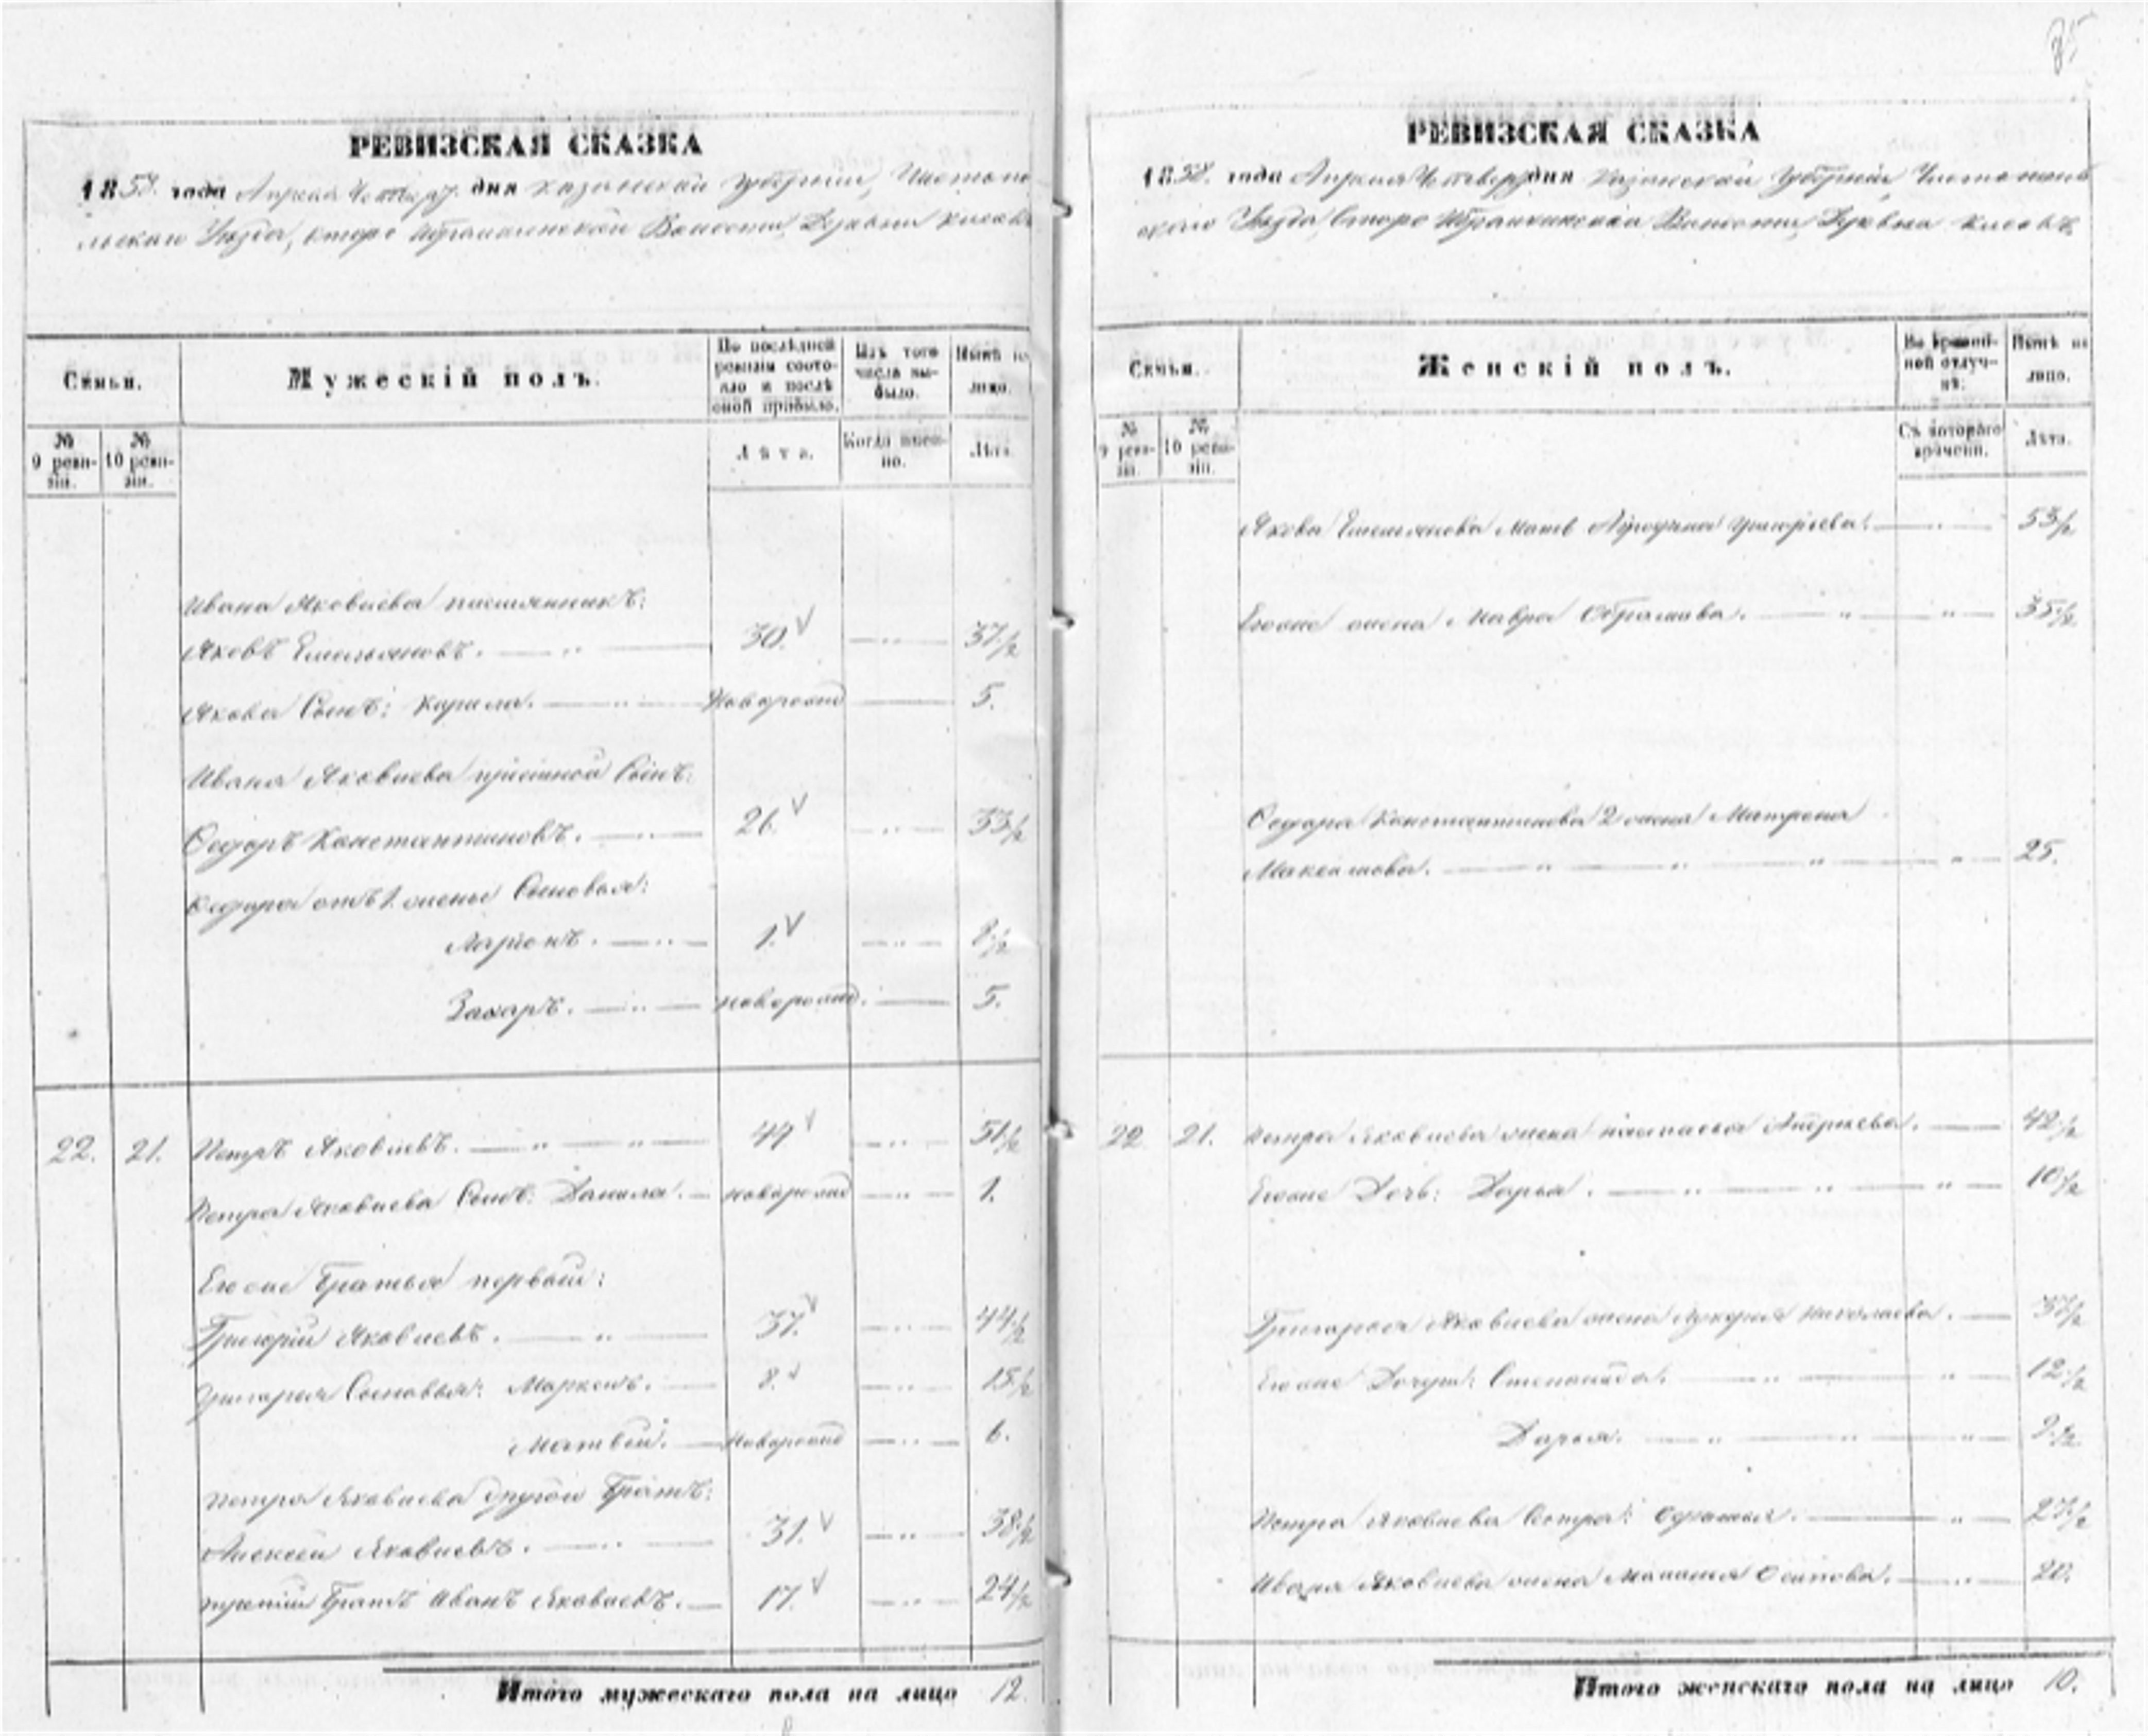 РЕВИЗСКАЯ СКАЗКА
1858 года Апреля дня Казанской Губернии, Чистопо
льскаго Уѣзда, старо Ибрайкинской Волости, Деревни
Семьи.
Мужескій полъ.
По послѣдней ревизіи состояло и послѣ оной прибыло.
Изъ того числа выбыло.
Нынѣ на лицо.
№ 9 ревизіи.
№ 10 ревизіи.
Лѣта.
Когда именно.
Лѣта.
Ивана Яковлева племянникъ:
Яковъ Емельяновъ. 30. 37½
Якова Сынъ: Карила. Новорожд 5.
Ивана Яковлева Сынъ:
Федоръ Константиновъ. 26. 33½
Федора отъ 1 жены Сыновья:
Ларіонъ. 1. 8½
Захаръ. новорожд. 5.
22. 21. Петръ Яковлевъ. 44 51½
Петра Яковлева Сынъ: Данила. новорожд 1.
Егоже Братья первый:
Григорій Яковлевъ. 37. 44½
Григорья Сыновья: Маркелъ. 8. 15½
Матвей. Новорожд 6.
Петра Яковлева другой Братъ:
Алексей Яковлевъ. 31. 38½
третій Братъ Иванъ Яковлевъ. 17. 24½
Итого мужескаго пола на лицо 12.
85
РЕВИЗСКАЯ СКАЗКА
1858. года Апреля дня Казанской Губерніи, Чистополь
скаго Уѣзда, Старо Ибрайкинской Волости, Деревни
Семьи.
Женскій полъ.
Во временной отлучкѣ.
Нынѣ на лицо.
№ 9 ревизіи.
№ 10 ревизіи.
Съ котораго времени.
Лѣта.
Якова Емельянова Мать Григорьева. 53½
Егоже жена Мавра 35½
Федора Константинова 2 жена Матрена
Максимова. 25.
22 21. Петра Яковлева жена Андреева. 42½
Егоже Дочь: Дарья. 10½
Григорья Яковлева жена Лукерья Николаева. 37½
Егоже Дочери: Степанида. 12½
Дарья.
Петра Яковлева Сестра: 27½
Ивана Яковлева жена Осипова. 20.
Итого женскаго пола на лицо 10.